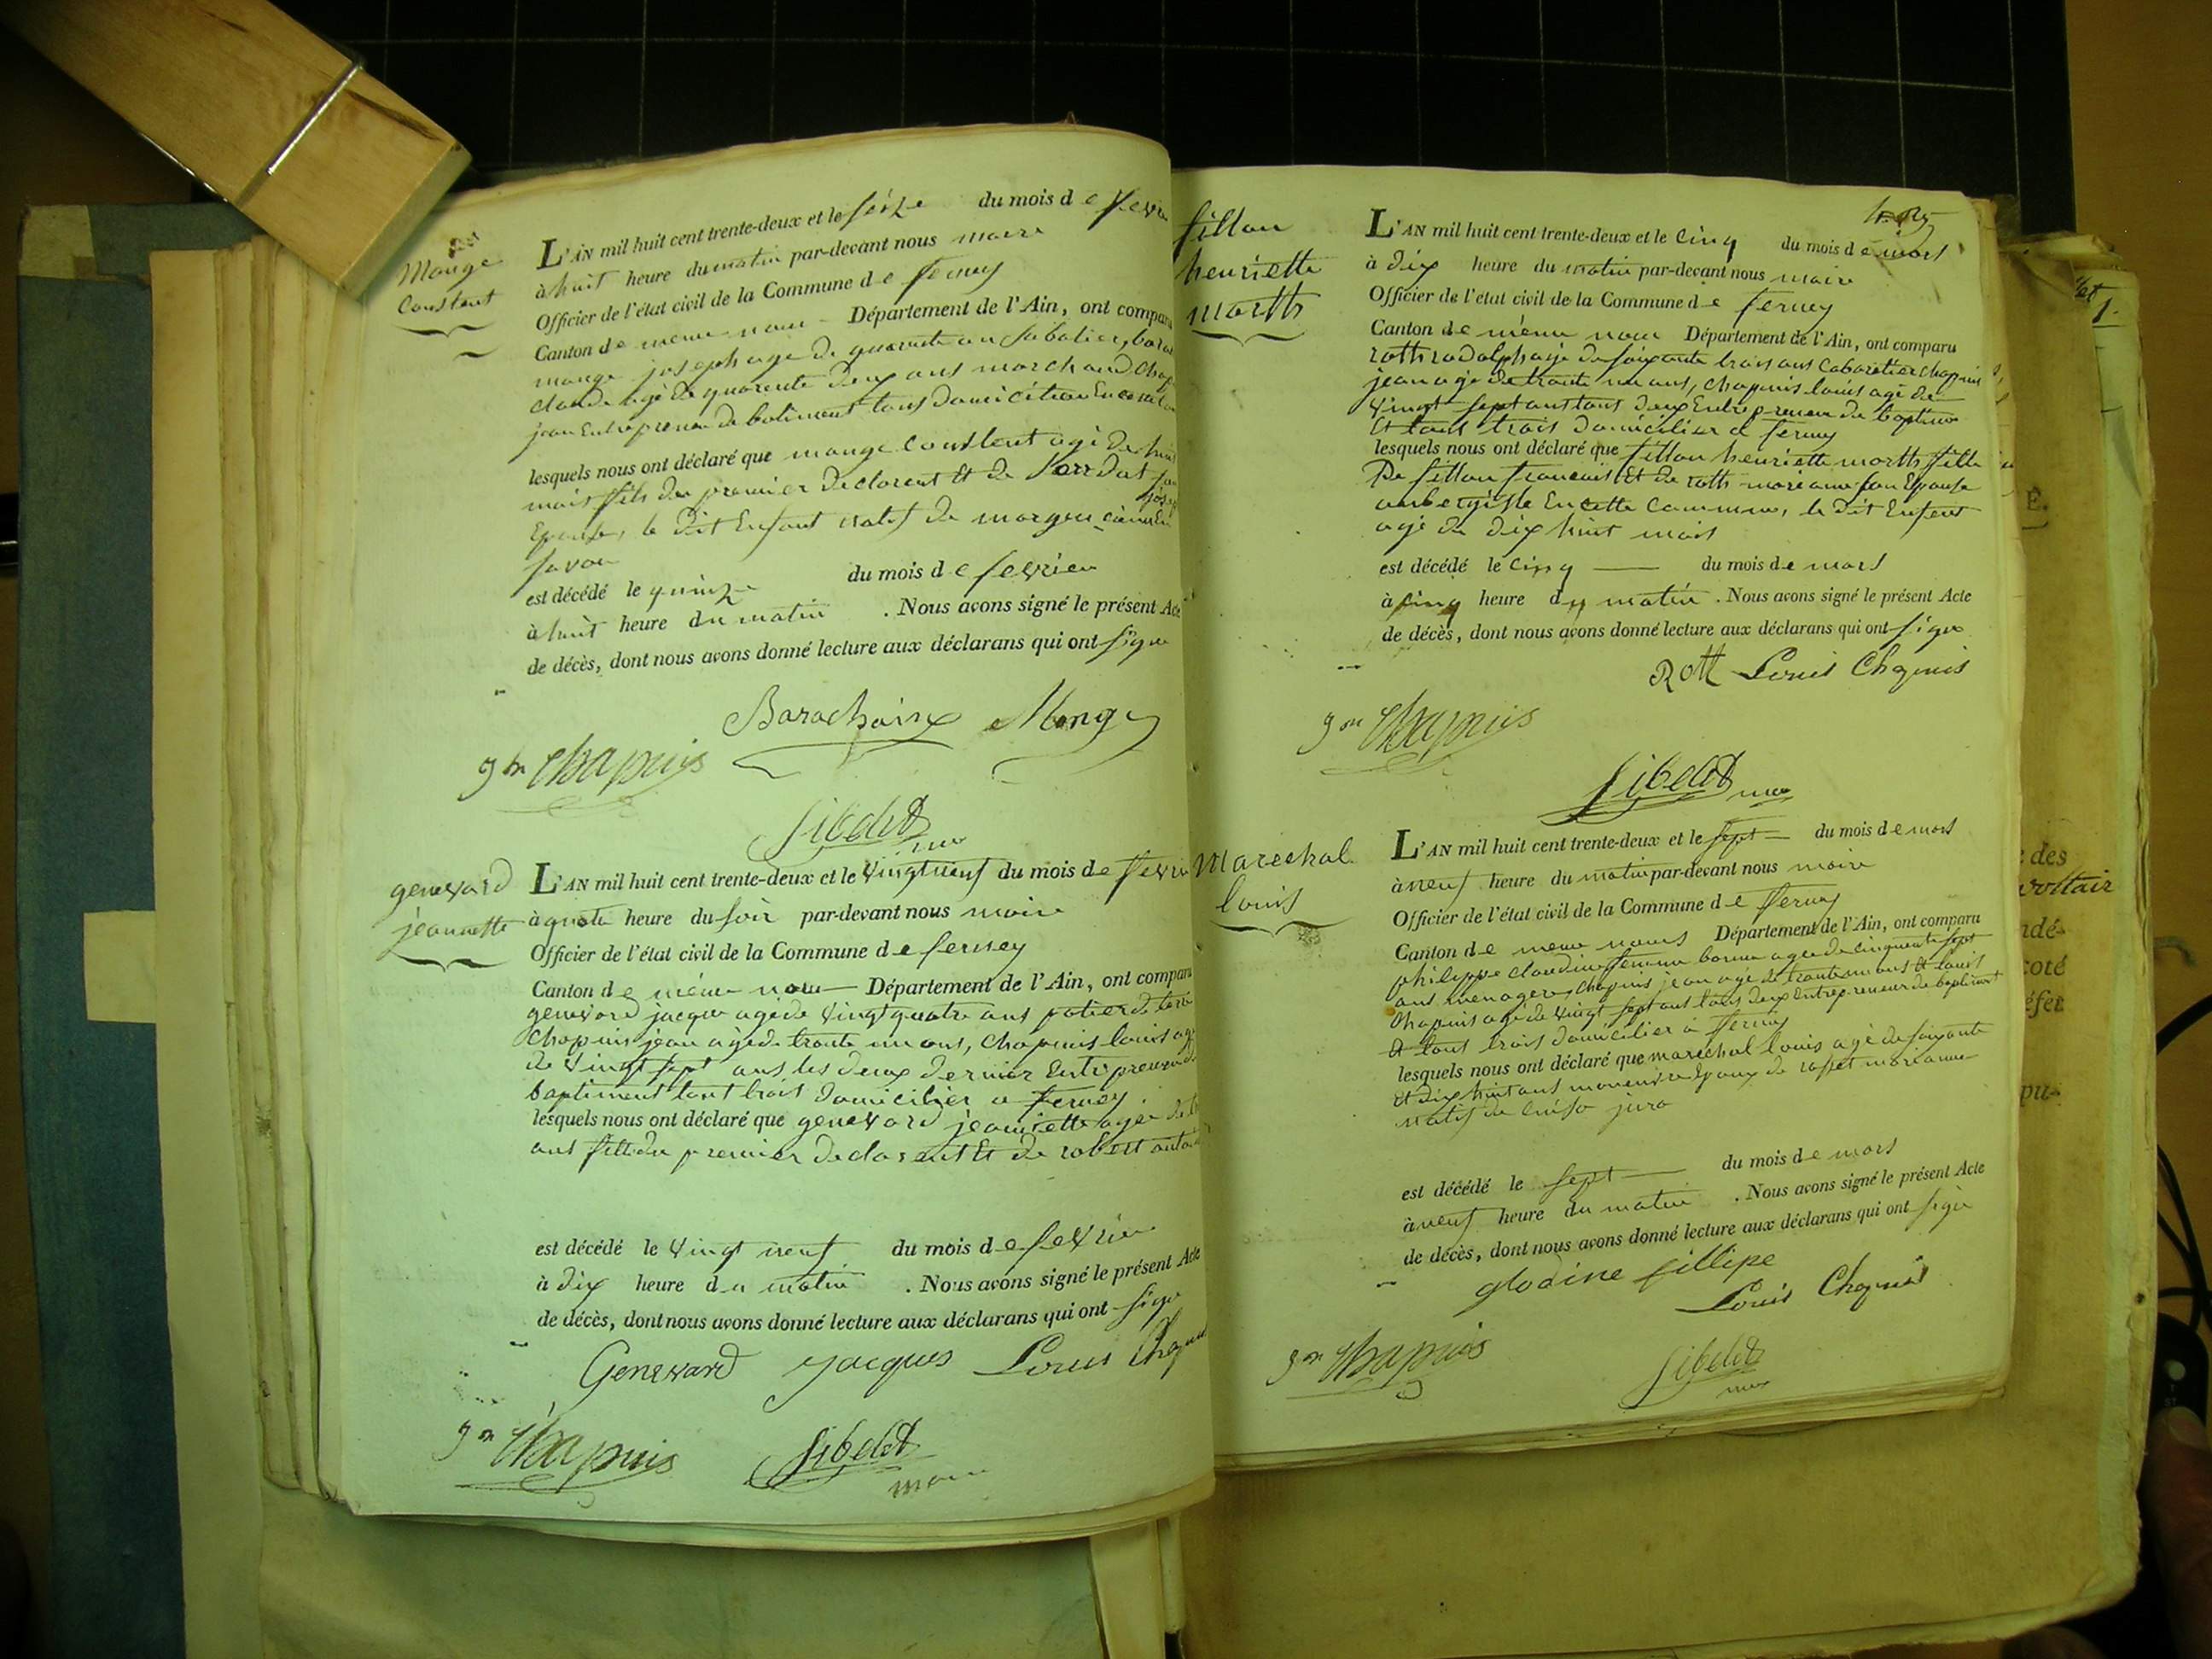 Monge
Constant
L'AN mil huit cent trente-deux et le seize du mois de fevri
à huit heure du matin par-devant nous maire
Officier de l'état civil de la Commune de ferney
Canton de meme nom Département de l'Ain, ont comparu
monge joseph age de quarante an sabotier,
claude agé de quarente deux ans marchand chap
jean Entrepreneur de batiment tous domicilier En
lesquels nous ont déclaré que monge constent agé de
mois fils du premier declarent et de
Epouse, le dit Enfant natif de
savoi
est décédé le quinze du mois de fevrier
à huit heure du matin . Nous avons signé le présent Acte
de décès, dont nous avons donné lecture aux déclarans qui ont signe
Barachaix Monge
jn Chapuis
genevard
jeannette
L'AN mil huit cent trente-deux et le vingt neuf du mois de fevri
à quatre heure du soir par-devant nous maire
Officier de l'état civil de la Commune de ferney
Canton de même nom Département de l'Ain, ont comparu
genevard jacque agé de vingt quatre ans potier de tere
Chapuis jean agé de trante un ans, Chapuis louis agé
de vingt sept ans les deux dernier Entrepreneur de
baptiment tout trois domicilier a ferney
lesquels nous ont déclaré que genevard jeannette agée de
ans fille du premier declarent et de robert
est décédé le vingt neuf du mois de fevrier
à dix heure du matin . Nous avons signé le présent Acte
de décès, dont nous avons donné lecture aux déclarans qui ont signe
Genevard jacques Louis Chapuis
jn Chapuis
maire
fillon
henriette
marth
L'AN mil huit cent trente-deux et le cinq du mois de mars
à dix heure du matin par-devant nous maire
Officier de l'état civil de la Commune de ferney
Canton de même nom Département de l'Ain, ont comparu
roth rodolph agé de soixante trois ans Cabaretier chapuis
jean agé de trante un ans, chapuis louis agé de
vingt sept ans tous deux Entrepreneur de baptimen
Et tous trois domicilier a ferney
lesquels nous ont déclaré que fillon henriette marth fille
De fillon francois Et de roth mariane son Epouse
aubergiste En cette commune, le dit Enfent
agé de dix huit mois
est décédé le cinq du mois de mars
à cinq heure du matin . Nous avons signé le présent Acte
de décès, dont nous avons donné lecture aux déclarans qui ont signe
Rott Louis Chapuis
jn Chapuis
Marechal
louis
L'AN mil huit cent trente-deux et le sept du mois de mars
à neuf heure du matin par-devant nous maire
Officier de l'état civil de la Commune de ferney
Canton de meme nom Département de l'Ain, ont comparu
philippe claudine femme agée de cinquante sept
ans menagere, chapuis jean agé de trante un ans Et louis
Chapuis agé de vingt sept ans tous deux Entrepreneur de baptiment
Et tous trois domicilier a ferney
lesquels nous ont déclaré que maréchal louis agé de soixante
Et dix huit ans Epoux de mariane
natif de jura
est décédé le sept du mois de mars
à neuf heure du matin . Nous avons signé le présent Acte
de décès, dont nous avons donné lecture aux déclarans qui ont signe
glodine fillipe
Louis Chapuis
jn Chapuis
1.
des
voltair
ndé-
coté
pu-